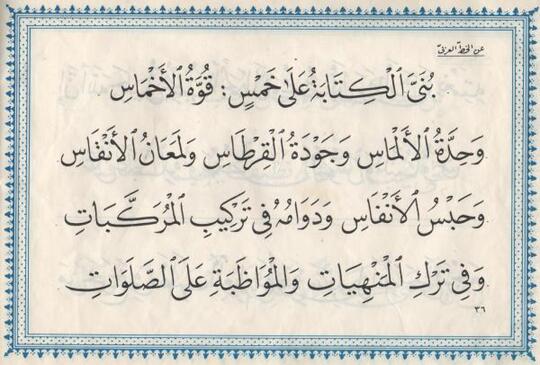 عن الخط العربي
بُنِيَ ٱلْكِتَابَةُ عَلَىٰ خَمْسٍ: قُوَّةُ ٱلْأَخْمَاسِ
وَحِدَّةُ ٱلْأَلْمَاسِ وَجَوْدَةُ ٱلْقِرْطَاسِ وَلَمَعَانُ ٱلْأَنْقَاسِ
وَحَبْسُ ٱلْأَنْفَاسِ وَدَوَامُهُ فِي تَرْكِيبِ ٱلْمُرَكَّبَاتِ
وَفِي تَرْكِ ٱلْمَنْهِيَاتِ وَٱلْمُوَاظَبَةِ عَلَى ٱلصَّلَوَاتِ
٣٦